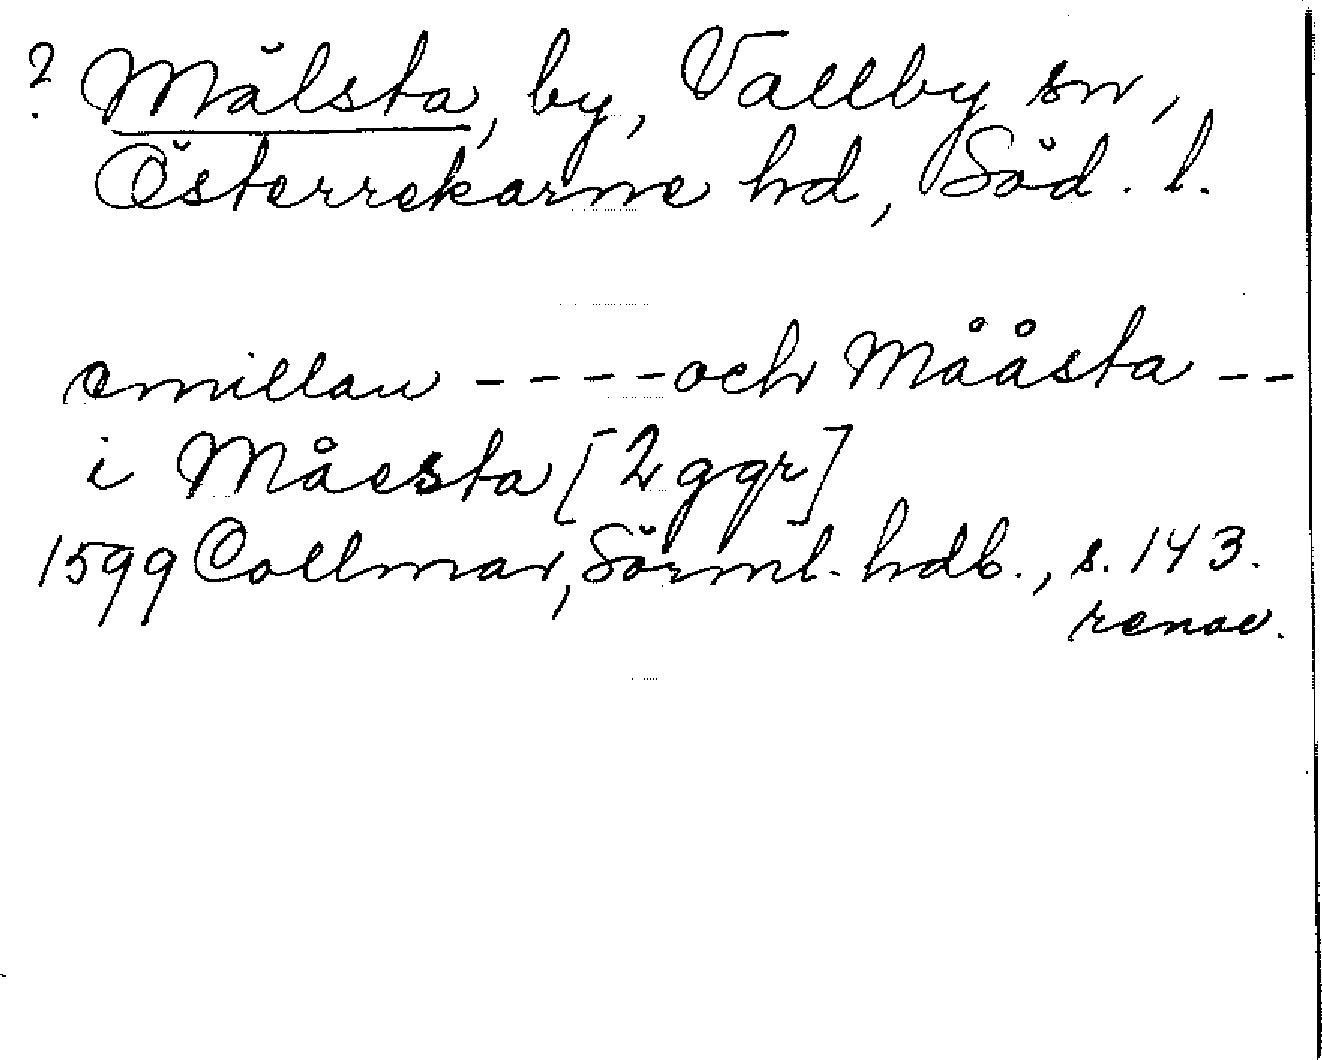 ? Mälsta, by, Vallby sn,
Österrekarne hd, Söd. l.
emillan ---- och Mååsta --
i Måesta [2 ggr]
1599 Collmar, Sörml. hdb., s. 143.
renov.